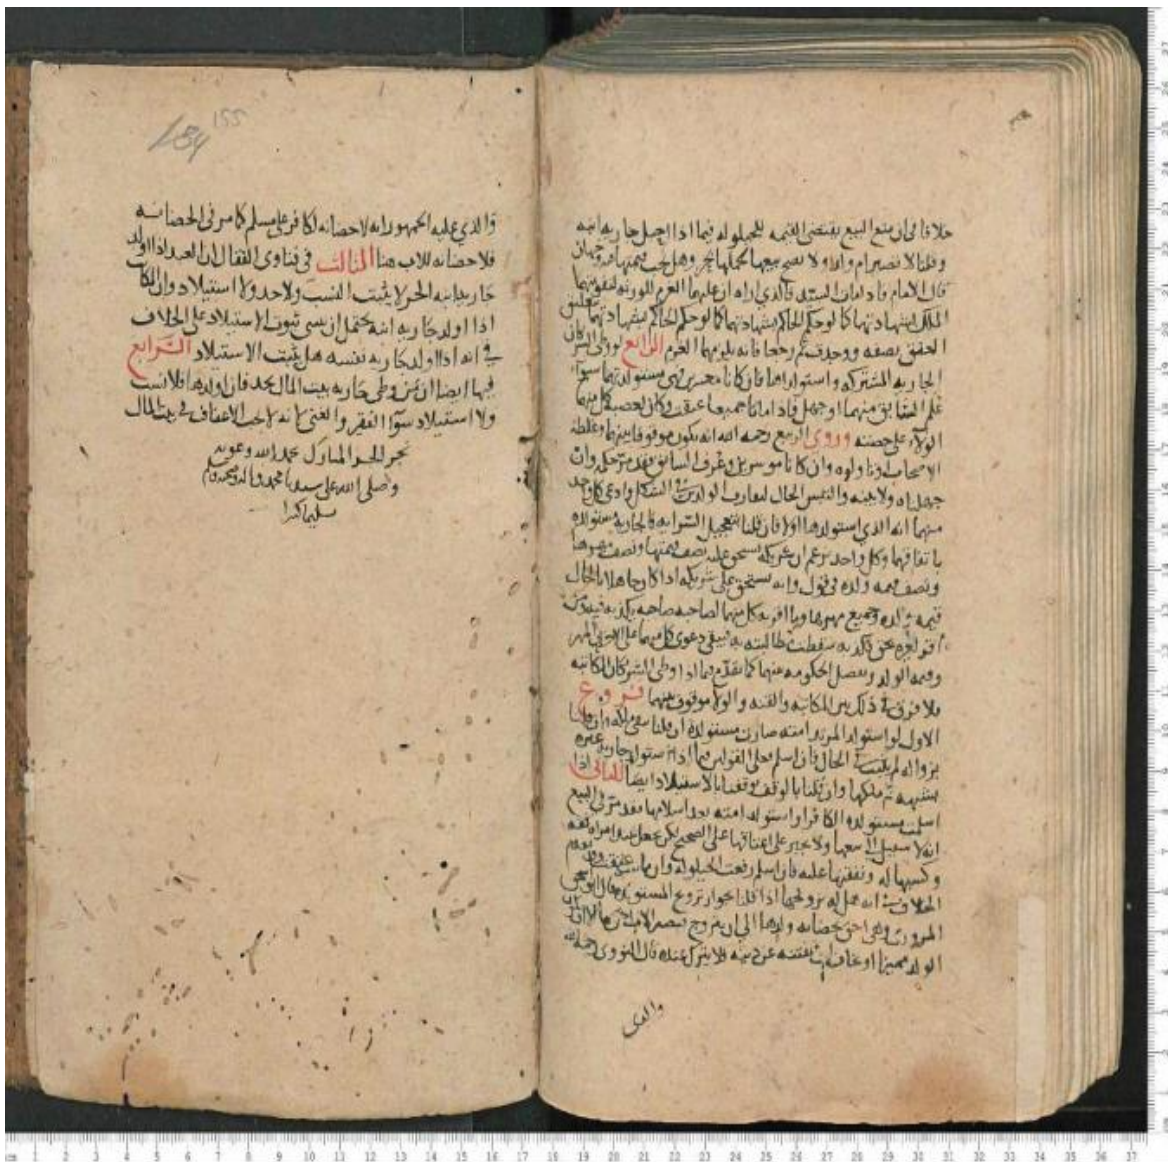 خلافا في ان منع البيع يقتضي القيمة للحيلولة فيما اذا احبل جارية ابنه
وقلنا لا تصير ام ولد ولا يصح بيعها لحملها بحر وهل يجب قيمتها فيه وجهان
قال الامام فاذا مات السيد فالذي اراه ان عليهما الغرم للورثة
الملك بشهادتهما كما لو حكم الحاكم بشهادتهما
العتق بصفة ووجدت ثم رجعا فانه يلزمهما الغرم الرابع لو وطئ الشريكان
الجارية المشتركة واستولداها فان كانا معسرين فهي مستولدتهما سواء
علم السابق منهما او جهل فاذا ماتا جميعا عتقت وكان لعصبة كل منهما
الولاء على حصته وروى الربيع رحمه الله انه يكون موقوفا بينهما وغلطه
الاصحاب او تاولوه وان كانا موسرين وعرف السابق فقد مر حكمه وان
جهلناه ولا بينة والتبس الحال لتقارب الولدين في الشكل وادعى كل واحد
منهما انه الذي استولدها اولا فان قلنا بتعجيل السراية فالجارية مستولدة
باتفاقهما وكل واحد يزعم ان شريكه استحق عليه نصف قيمتها ونصف مهرها
ونصف قيمة ولده في قول وانه يستحق على شريكه اذا كان جاهلا بالحال
قيمة ولده وجميع مهرها وما اقر به كل منهما لصاحبه صاحبه يكذبه فيه ومن
اقر لغيره بحق فكذبه سقطت مطالبته به فيبقى دعوى كل منهما على الاخر المهر
وقيمة الولد وتفصل الحكومة بينهما كما تقدم فيما اذا وطئ الشريكان المكاتبة
ولا فرق في ذلك بين المكاتبة والقنة والولاء موقوف بينهما فروع
الاول لو استولد المرتد امته صارت مستولدة ان قلنا ببقاء ملكه وان قلنا
بزواله لم يثبت في الحال فان اسلم فعلى القولين فيما اذا استولد جارية غيره
بشبهة ثم ملكها وان قلنا بالوقف وقفنا بالاستيلاد ايضا الثاني اذا
اسلمت مستولدة الكافر او استولد امته بعد اسلامها فقد مر في البيع
انه لا سبيل الى بيعها ولا يجبر على اعتاقها على الصحيح لكن تجعل عند امراة ثقة
وكسبها له ونفقتها عليه فان اسلم رفعت الحيلولة وان مات عتقت
الخلاف في انه هل له تزويجها اذا قلنا بجواز تزويج المستولدة قال
وهي احق بحضانة ولدها الى ان تتزوج فيصير الاب احق بها الا ان
الولد مميزا او خاف ان تفتنه عن دينه فلا يترك عنده قال النووي رحمه الله
والذي
155
154
والذي عليه الجمهور انه لا حضانة لكافر على مسلم كما مر في الحضانة
فلا حضانة للاب هنا الثالث في فتاوى القفال ان العبد اذا اولد
جارية ابنه الحر لا يثبت النسب ولا حد ولا استيلاد وان المكاتب
اذا اولد جارية ابنه يحتمل ان يبنى ثبوت الاستيلاد على الخلاف
في انه اذا اولد جارية نفسه هل يثبت الاستيلاد الرابع
فيها ايضا ان من وطئ جارية بيت المال يحد فان اولدها فلا نسب
ولا استيلاد سواء الفقير والغني لانه لا يجب الاعفاف في بيت المال
نجز الجزء المبارك بحمد الله وعونه
وصلى الله على سيدنا محمد واله وصحبه وسلم
تسليما كثيرا